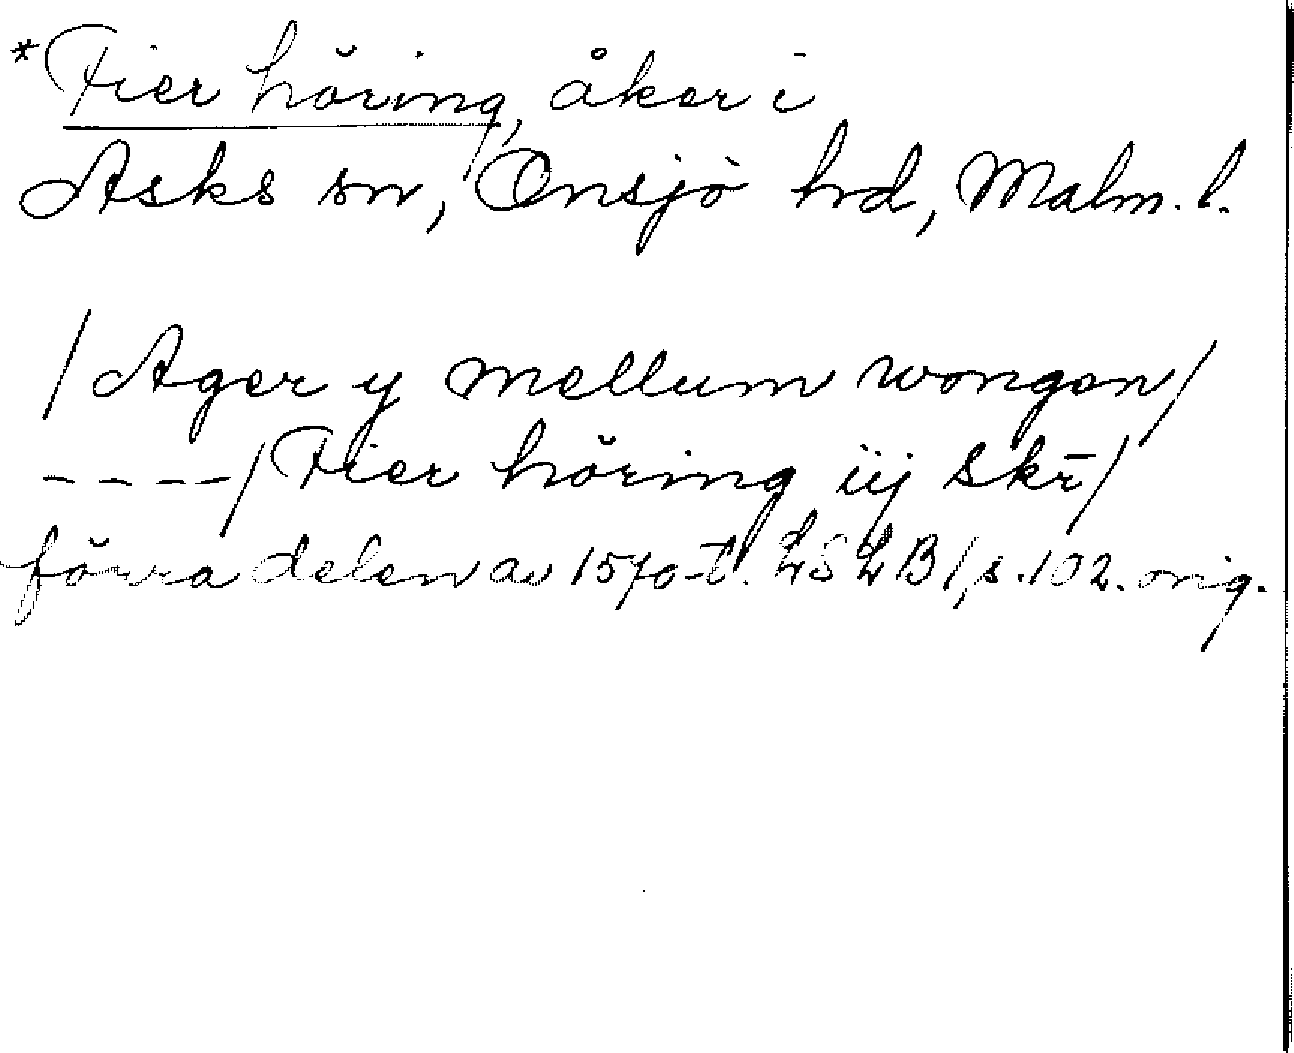 *Fier höring, åker i
Asks sn, Onsjö hd, Malm. l.
/Ager y mellum wongen/
----/Fier höring iij Skr/
förra delen av 1570-t. LSLB 1, s. 102. orig.